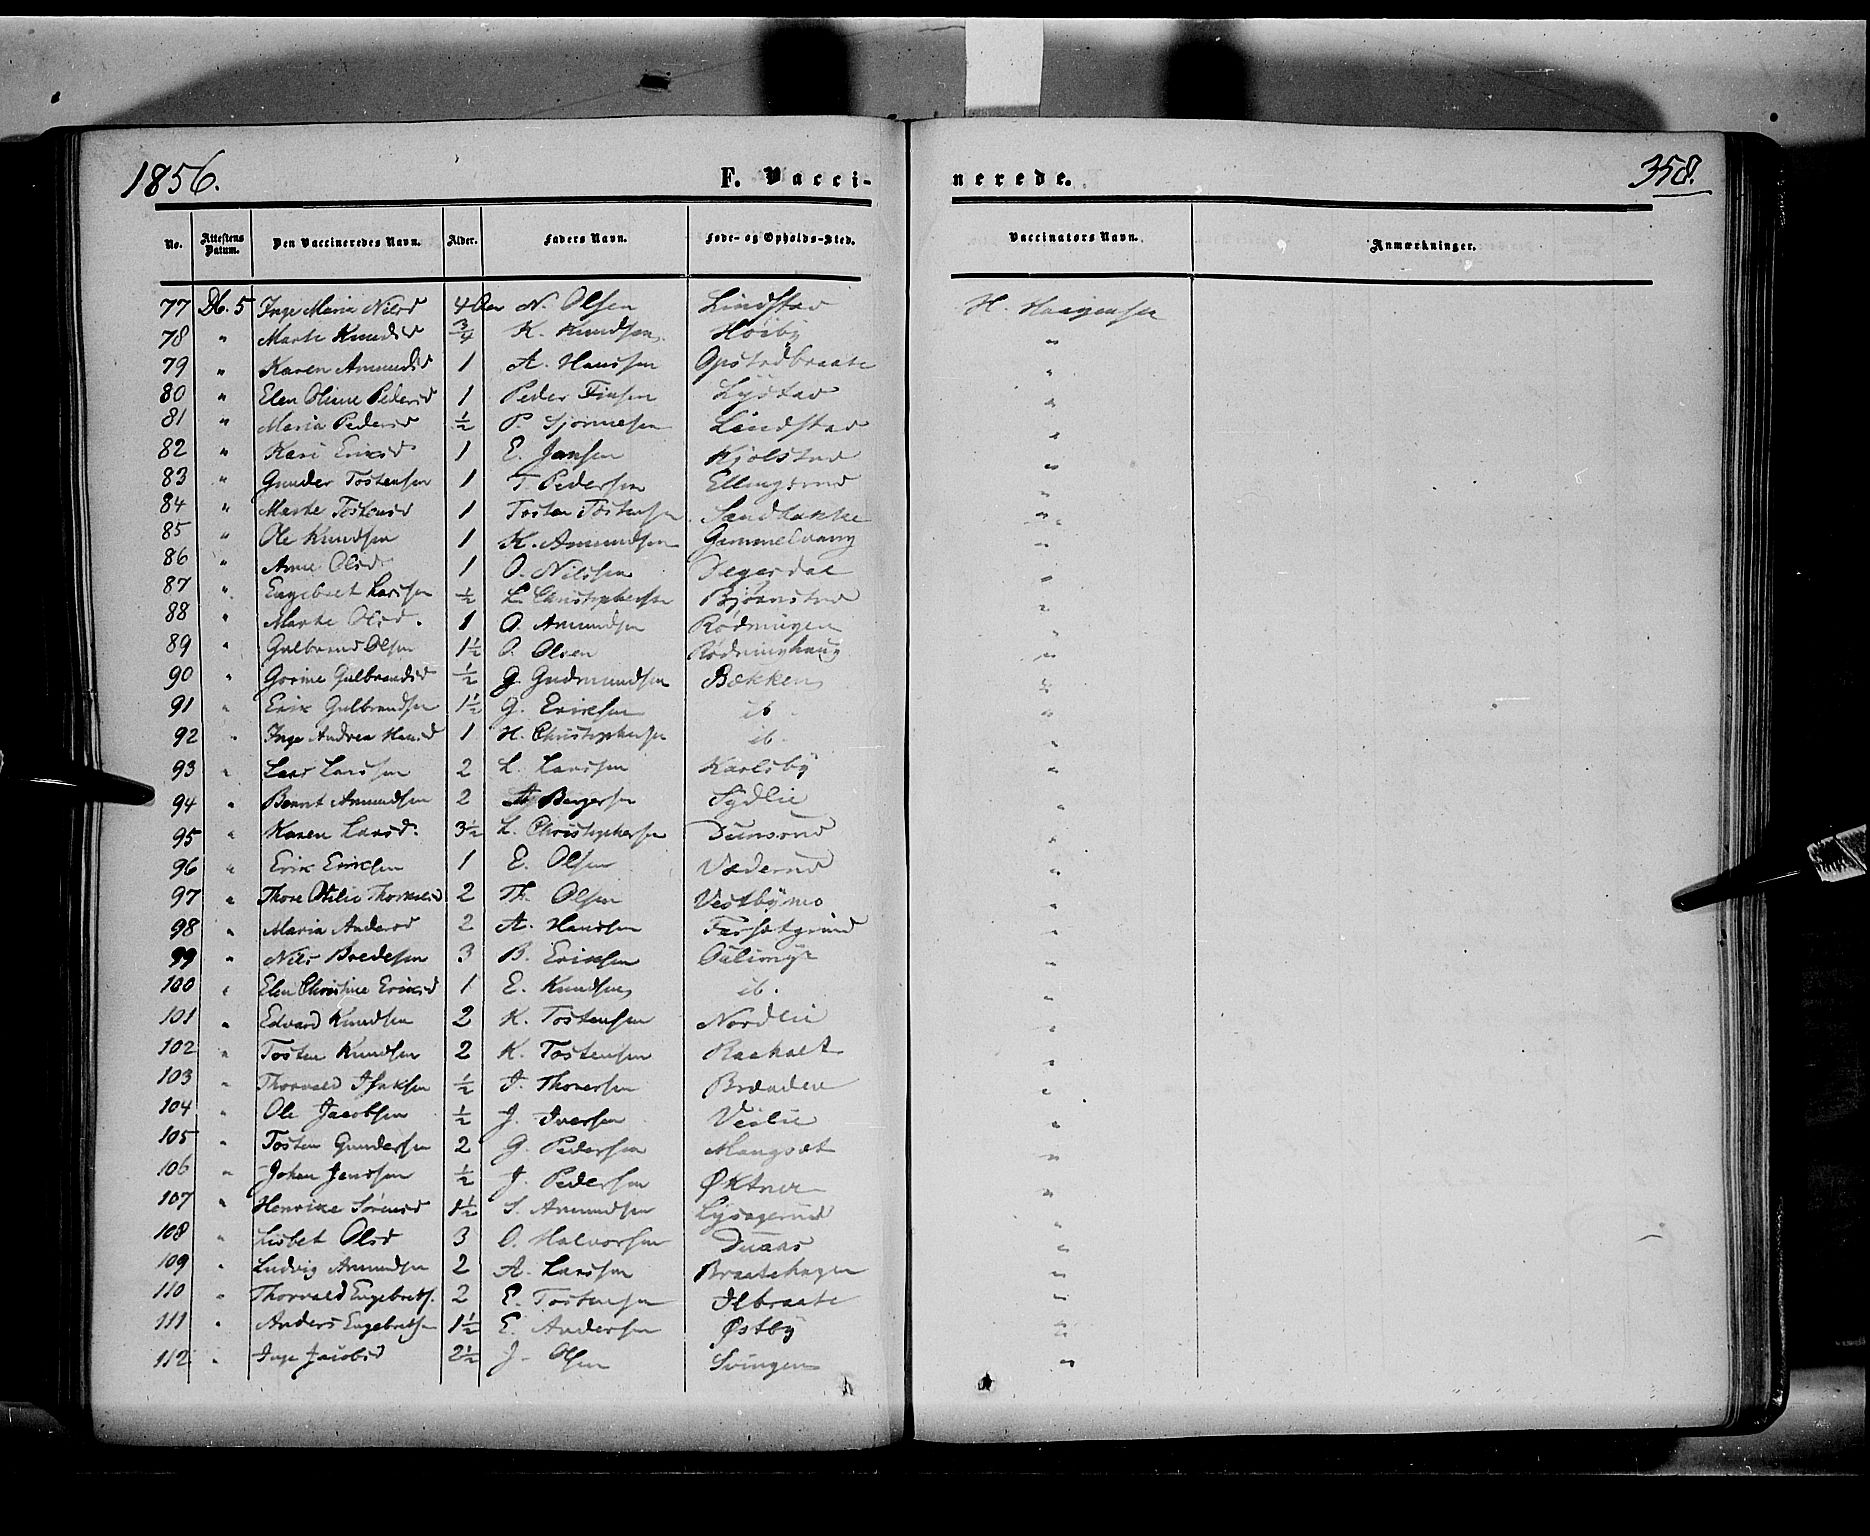 1856. F. Vacci- nerede. 358.
No. Attestens Datum. Den Vaccineredes Navn. Alder. Faders Navn. Føde- og Opholds-Sted. Vaccinators Navn. Anmærkninger.
77 Db. 5 Inge Maria Nilsd 4 N. Olsen Lindstad H. Haagensen
78 " Marte Knudsd 3/4 K. Knudsen Høiby "
79 " Karen Amundsd 1 A. Hanssen Opstadbraate "
80 " Elen Oliane Pedersd 1 Peder Finsen Lystad "
81 " Maria Pedersd 1/2 P. Lindstad "
82 " Kari Eriksd 1 E. Jansen Kjolstad "
83 " Gunder Tostensen 1 T. Pedersen Ellingsrud "
84 " Marte Tostensd 1 Tosten Tostensen Sandbakke "
85 " Ole Knudsen 1 K. Amundsen Gammelvang "
86 " Anne Olsd 1 O. Nilssen "
87 " Engebret Larssen 1/2 L. Christophersen Bjørnstad "
88 " Marte Olsd. 1 O. Amundsen Rødningen "
89 " Gulbrand Olsen 1 1/2 O. Olsen Rødninghaug "
90 " Gorine Gulbrandsd 1/2 G. Gudmundsen Bækken "
91 " Erik Gulbrandsen 1 1/2 G. Eriksen ib. "
92 " Inge Andrea Hansd 1 H. Christophersen ib. "
93 " Lars Larssen 2 L. Larssen Karlsby "
94 " Bernt Amundsen 2 A Bergersen Sydlie "
95 " Karen Larsd. 3 1/2 L. Christophersen "
96 " Erik Eriksen 1 E. Olsen "
97 " Thore Otilie 2 Th. Olsen Vestbymo "
98 " Maria Andersd 2 A. Hanssen "
99 " Nils Bredesen 3 B. Eriksen "
100 " Elen Christine Eriksd 1 E. Knudsen ib. "
101 " Edvard Knudsen 2 K. Tostensen Nordlie "
102 " Tosten Knudsen 2 K. Tostensen Raaholt "
103 " Thorvald Isaksen 1/2 I. Thoresen Brænden "
104 " Ole Jacobsen 1/2 J. Iversen "
105 " Tosten Gundersen 2 G. Pedersen Mangset "
106 " Johan Jenssen 1/2 J. Pedersen Øktner "
107 " Henrike Sørensd 1 1/2 S. Amundsen Lysagerud "
108 " Lisbet Olsd 3 O. Halvorsen "
109 " Ludvig Amundsen 2 A. Larssen Braatehagen "
110 " Thorvald Engebrets. 2 E. Tostensen "
111 " Anders Engebretsen 1 1/2 E. Andersen Østby "
112 " Inge Jacobsd 2 1/2 J. Olsen Svingen "